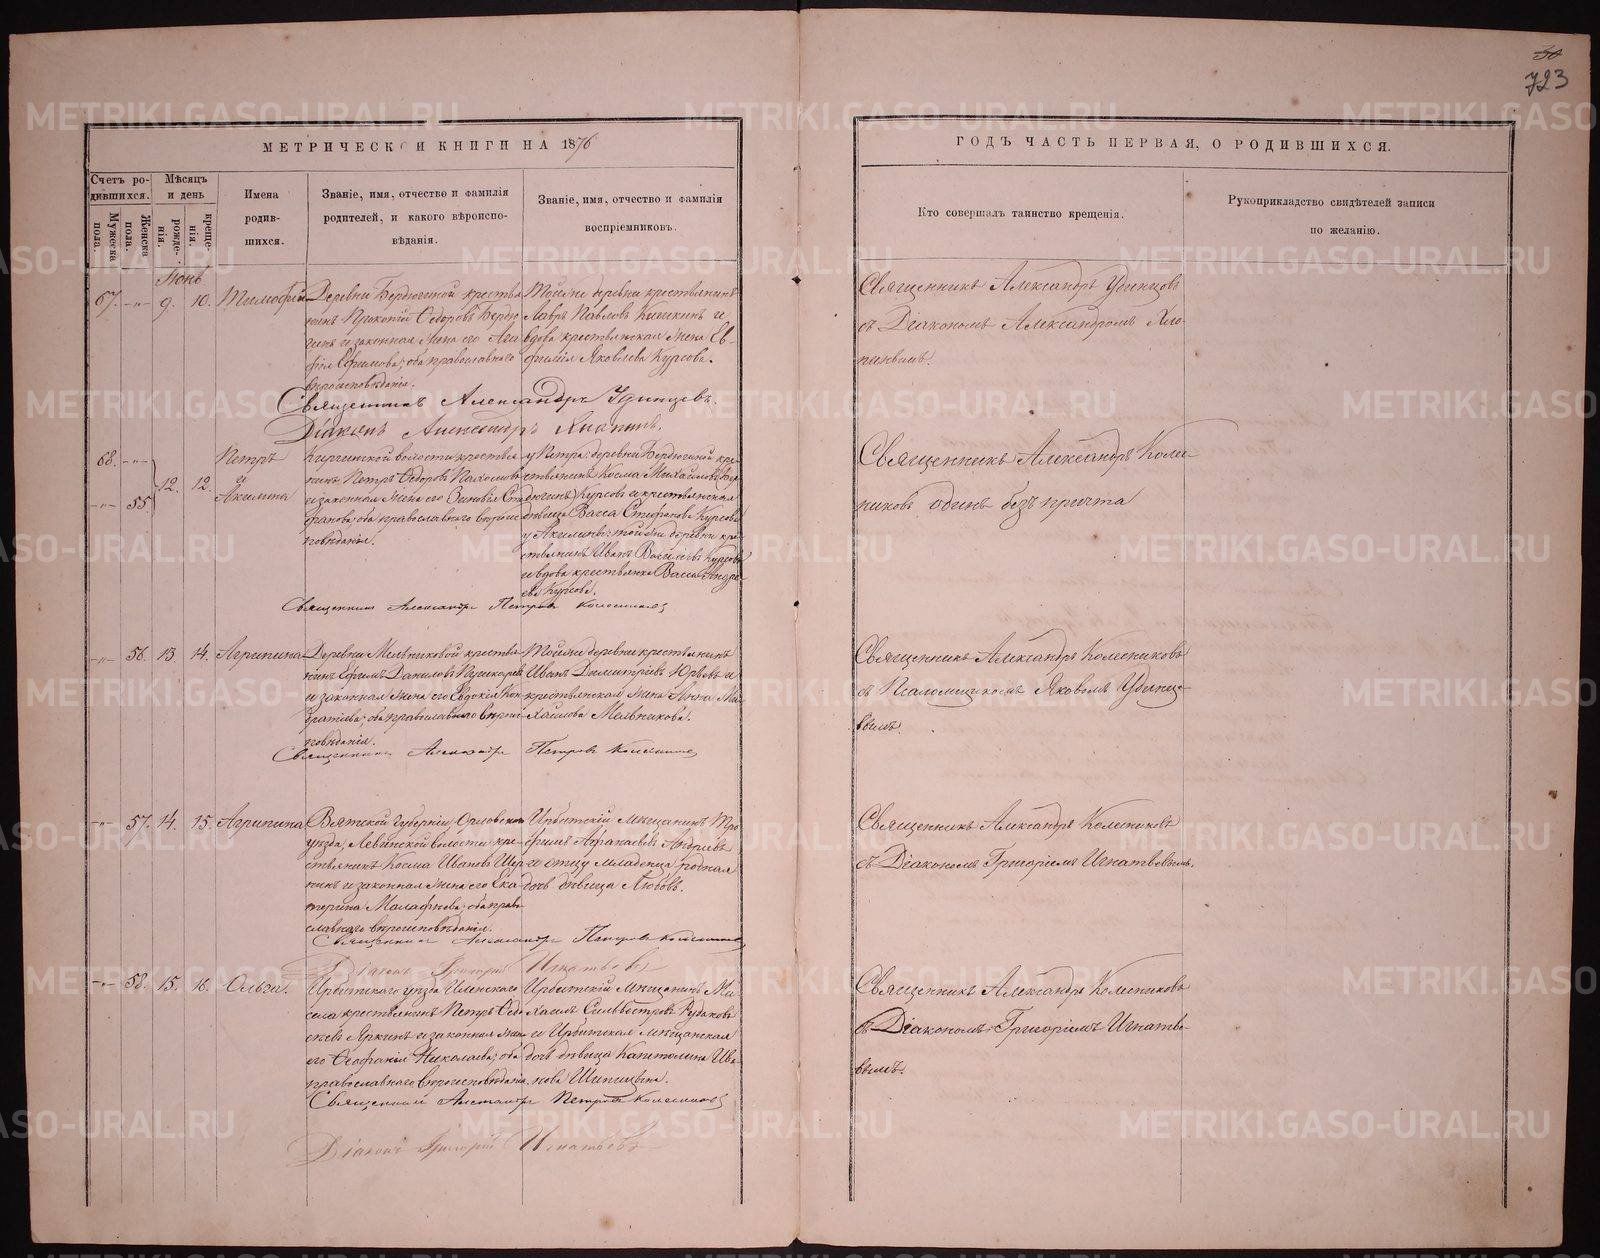 30
723
МЕТРИЧЕСКОЙ КНИГИ НА 1876
ГОДЪ ЧАСТЬ ПЕРВАЯ, О РОДИВШИХСЯ.
Счетъ ро-
дившихся.
Мужеска
пола.
Женска
пола.
Мѣсяцъ
и день
рожде-
нія.
креще-
нія.
Имена
родив-
шихся.
Званіе, имя, отчество и фамилія
родителей, и какого вѣроиспо-
вѣданія.
Званіе, имя, отчество и фамилія
воспріемниковъ.
Кто совершалъ таинство крещенія.
Рукоприкладство свидѣтелей записи
по желанію.
Іюнь
67. -„- 9. 10. Тимофей
Деревни Бердюгиной крестья-
нинъ Прокопій Ѳедоровъ Бердю-
гинъ и законная жена его Ага-
фія Ефимова; оба православнаго
вѣроисповѣданія.
Тойже деревни крестьянинъ
Лавръ Павловъ Кишкинъ и
вдова крестьянская жена Ев-
фимія Яковлева Курсова.
Священникъ Александръ Удинцовъ
съ Діакономъ Александромъ Хло-
пинымъ.
Священникъ Александръ Удинцевъ.
Діаконъ Александръ Хлопинъ.
68. -„-
-„- 55.
12. 12.
Петръ
и
Акилина
Киргинской волости крестья-
нинъ Петръ Ѳедоровъ
и законная жена его Зиновія Сте-
фанова; оба православнаго вѣроис-
повѣданія.
у Петра: деревни Бердюгиной кре-
стьянинъ Косма Михайловъ
Курсовъ и крестьянская
дѣвица Васса Стефанова Курсова
у Акилины: тойже деревни кре-
стьянинъ Иванъ Васильевъ Курсовъ
и вдова крестьянка Васса Андре-
ева Курсова.
Священникъ Александръ Колес-
никовъ одинъ безъ причта
Священникъ Александръ Петровъ Колесниковъ
-„- 56. 13. 14. Агрипина
Деревни Мельниковой крестья-
нинъ Ефимъ Даниловъ Пушкаревъ
и законная жена его Евдокія Кон-
дратіева; оба православнаго вѣроис-
повѣданія.
Тойже деревни крестьянинъ
Иванъ Димитріевъ Юрьевъ и
крестьянская жена Анна Ми-
хайлова Мельникова.
Священникъ Александръ Колесниковъ
съ Псаломщикомъ Яковомъ Удинце-
вымъ.
Священникъ Александръ Петровъ Колесниковъ
-„- 57. 14. 15. Агрипина
Вятской губерніи, Орловскаго
уѣзда, Левинской волости кре-
стьянинъ Косма Ивановъ
и законная жена его Ека-
терина Малафеева; оба право-
славнаго вѣроисповѣданія.
Ирбитскій мѣщанинъ Тро-
фимъ Афанасьевъ Андреевъ
и отцу младенца родная
дочь дѣвица Любовь.
Священникъ Александръ Колесниковъ
съ Діакономъ Григоріемъ Игнатьевымъ.
Священникъ Александръ Петровъ Колесниковъ
Діаконъ Григорій Игнатьевъ
-„- 58. 15. 16. Ольга.
Ирбитскаго уѣзда Иленскаго
села крестьянинъ Петръ Ѳедо-
сѣевъ Яркинъ и законная жена
его Ѳеофанія Николаева; оба
православнаго вѣроисповѣданія.
Ирбитскій мѣщанинъ Ми-
хаилъ Сильвестровъ Рудаковъ
и Ирбитская мѣщанская
дочь дѣвица Капитолина Ива-
нова Шипицына.
Священникъ Александръ Колесниковъ
съ Діакономъ Григоріемъ Игнатье-
вымъ.
Священникъ Александръ Петровъ Колесниковъ
Діаконъ Григорій Игнатьевъ
METRIKI.GASO-URAL.RU